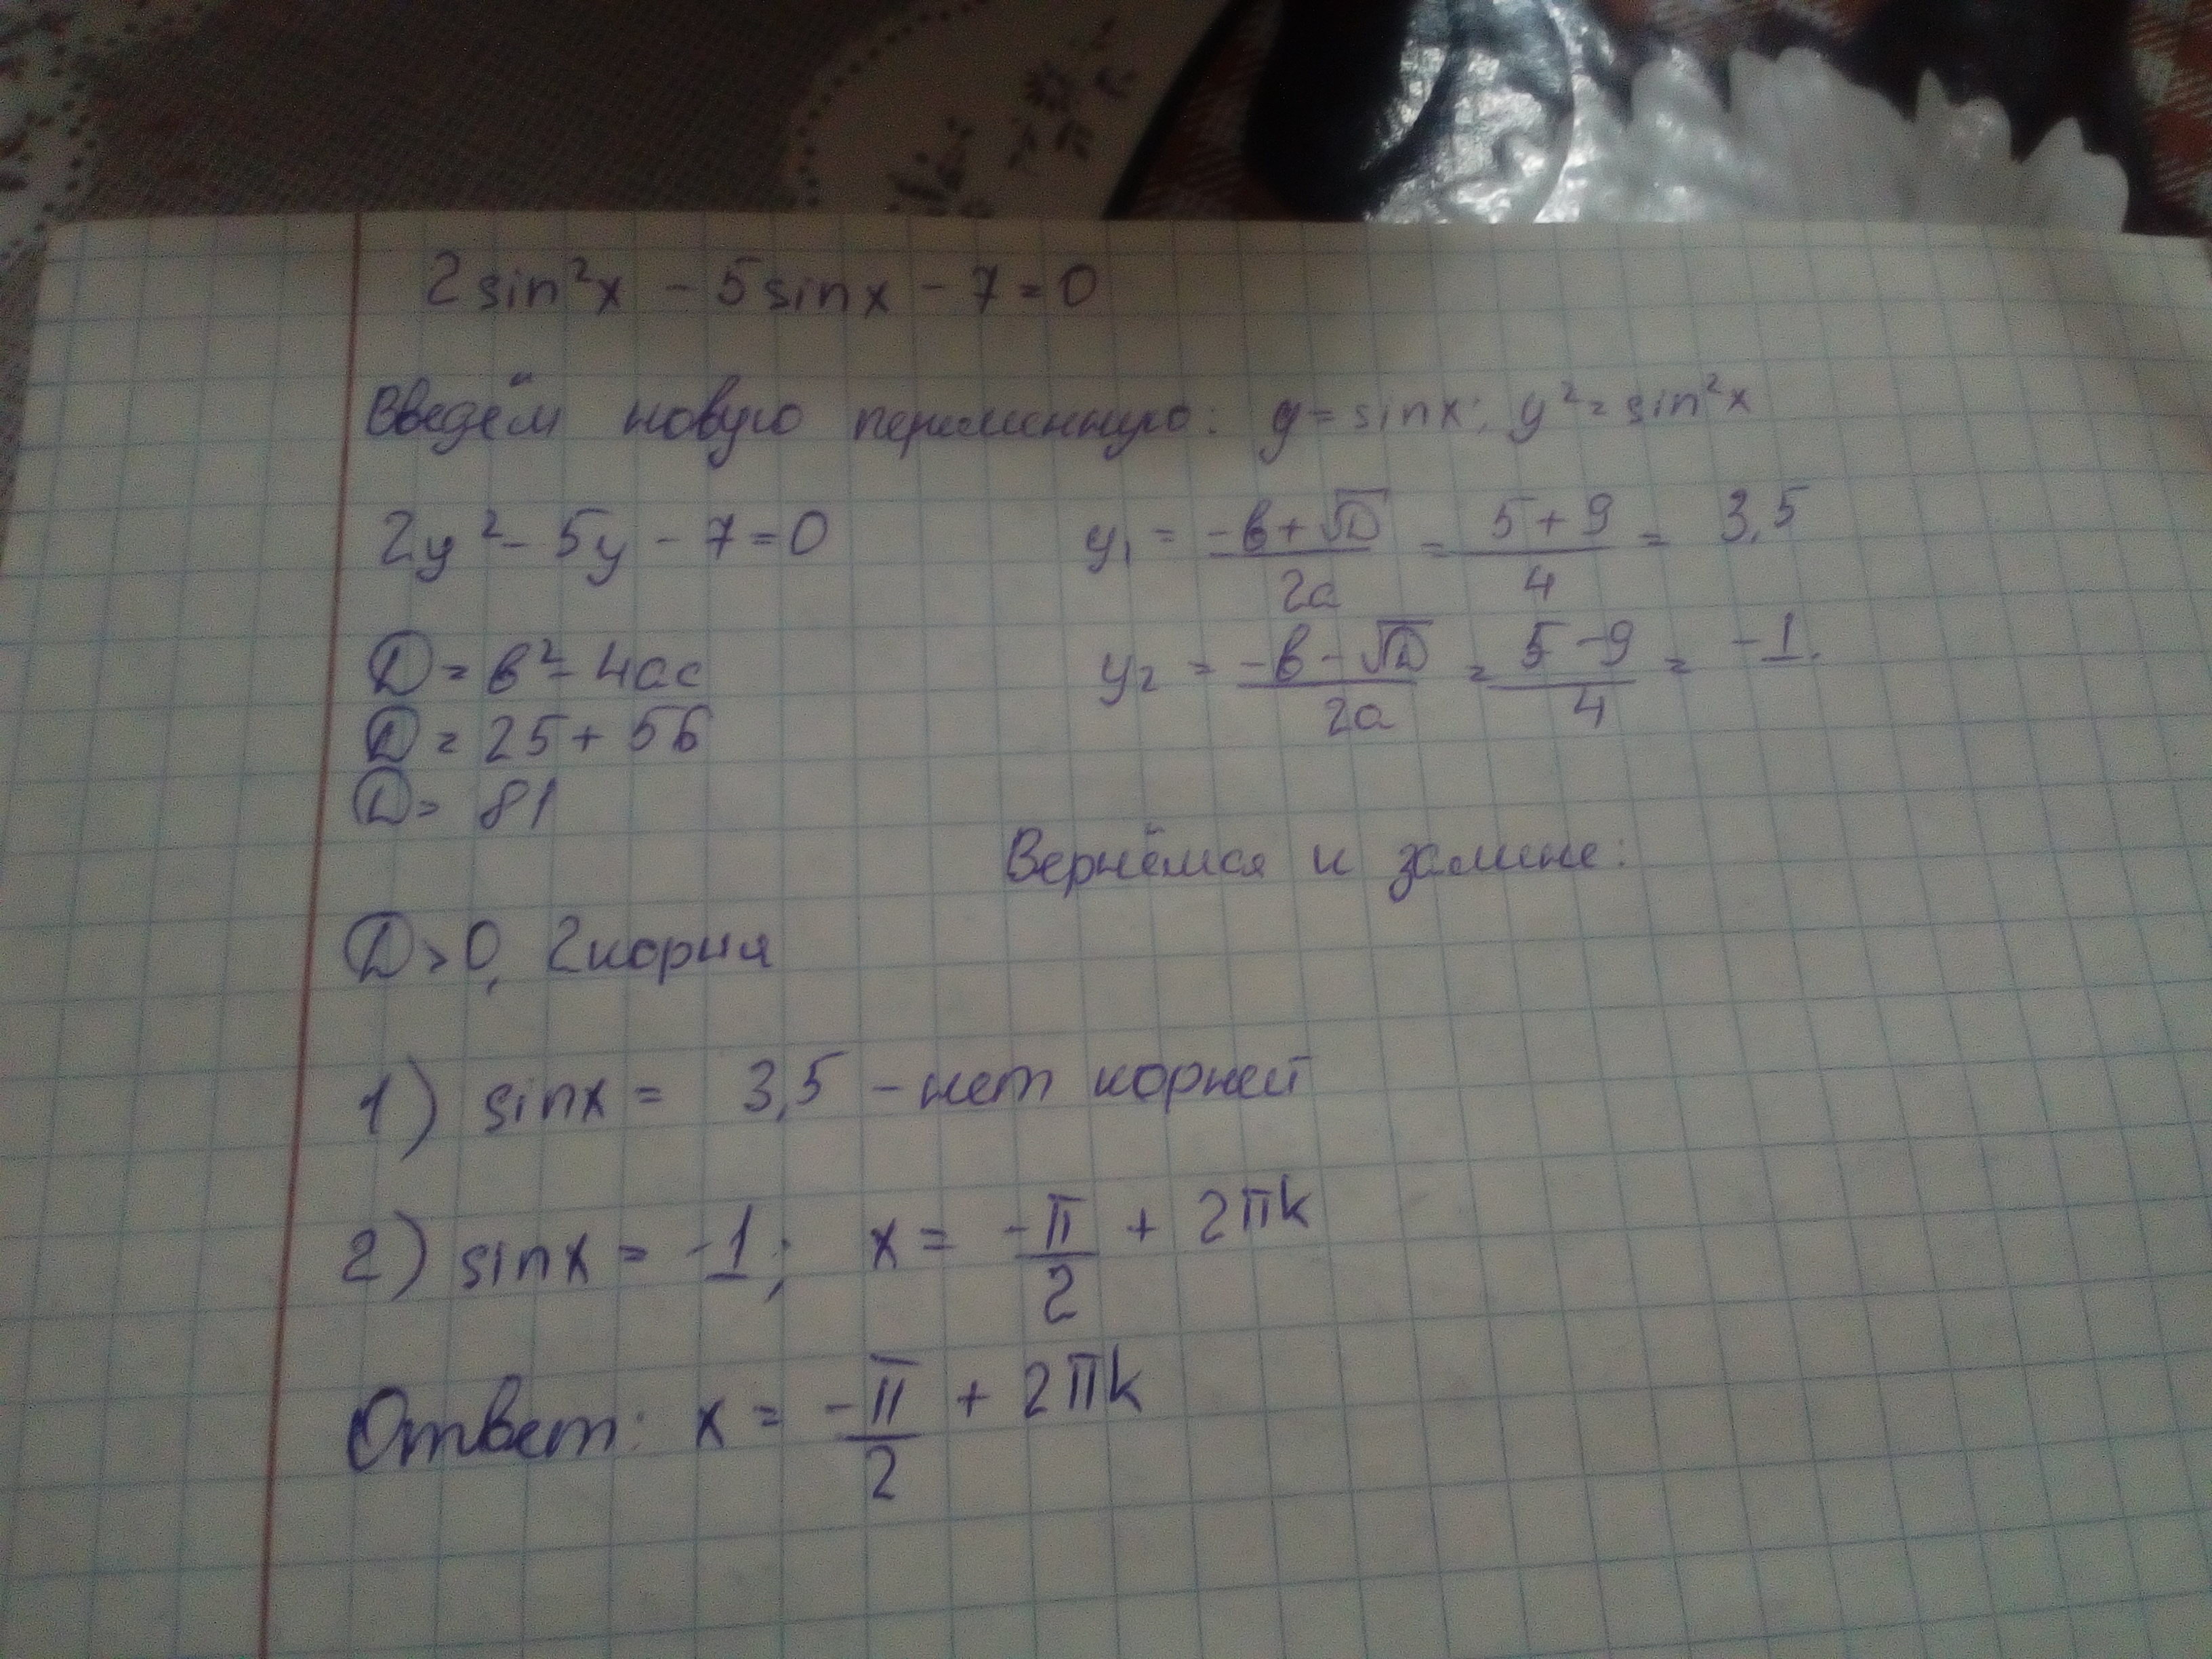 2sin²x - 5sinx - 7 = 0
Введём новую переменную: y = sinx; y² = sin²x
2y² - 5y - 7 = 0
D = в² - 4ac
D = 25 + 56
D = 81
D > 0, 2 корня
y₁ = (-в + √D)/2a = (5 + 9)/4 = 3,5
y₂ = (-в - √D)/2a = (5 - 9)/4 = -1.
Вернёмся к замене:
1) sinx = 3,5 - нет корней
2) sinx = -1; x = -π/2 + 2πk
Ответ: x = -π/2 + 2πk